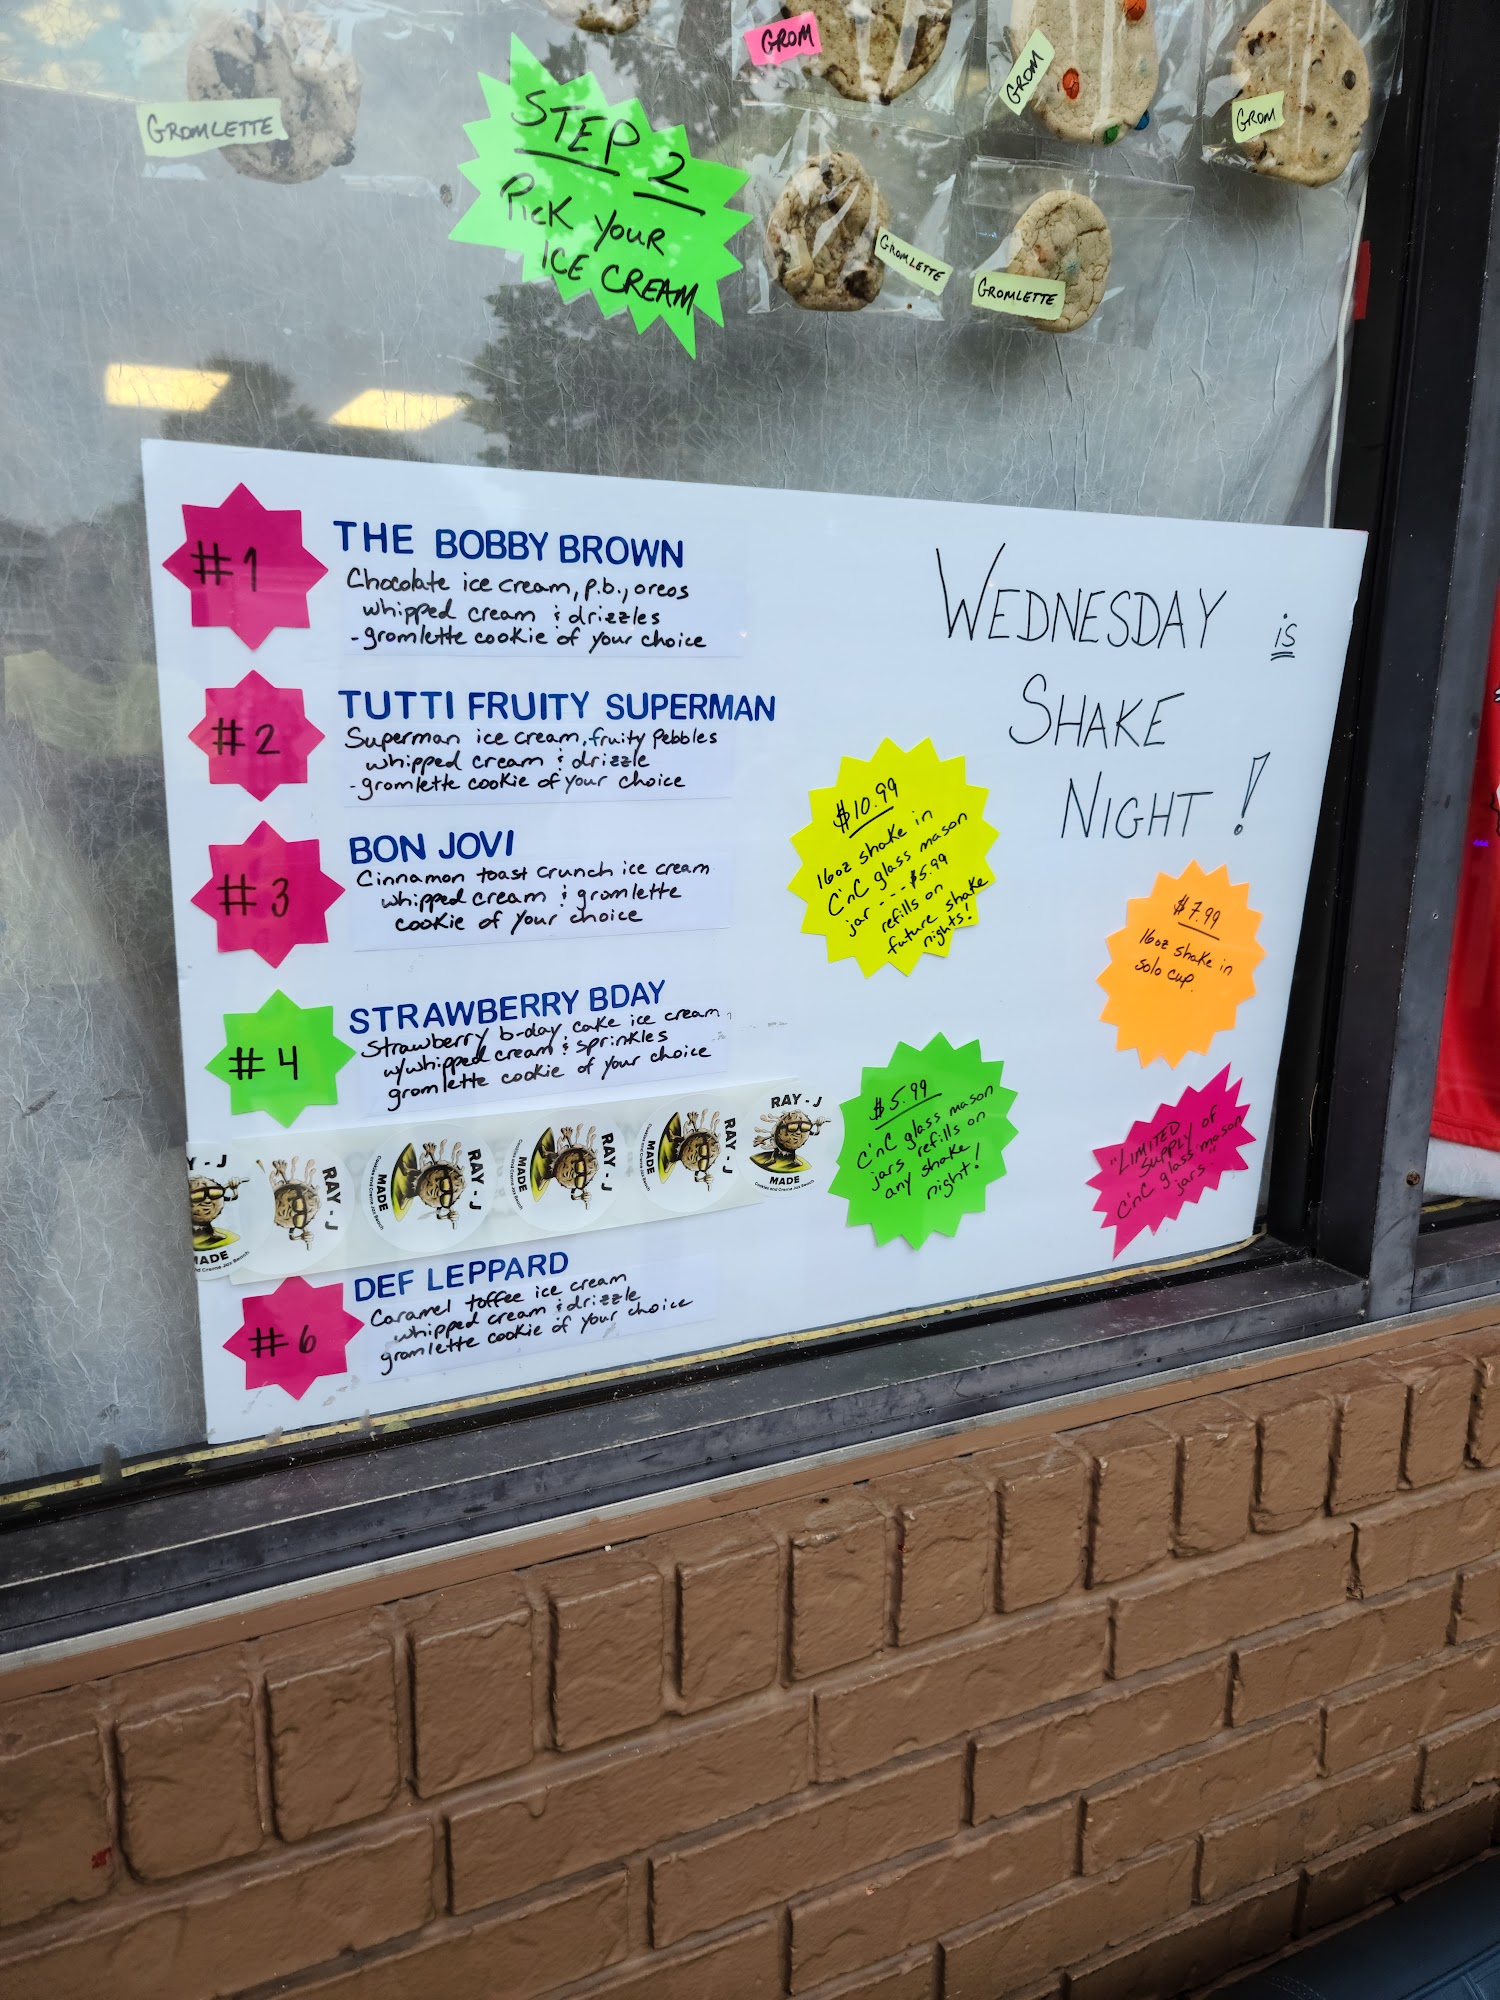 GROMLETTE
STEP 2
Pick Your
ICE CREAM
GROM
GROM
GROM
GROMLETTE
GROMLETTE
#1
THE BOBBY BROWN
Chocolate ice cream, p.b., oreos
whipped cream & drizzles
-gromlette cookie of your choice
#2
TUTTI FRUITY SUPERMAN
Superman ice cream, fruity pebbles
whipped cream & drizzle
-gromlette cookie of your choice
#3
BON JOVI
Cinnamon toast crunch ice cream
whipped cream & gromlette
cookie of your choice
#4
STRAWBERRY BDAY
Strawberry b-day cake ice cream,
w/whipped cream & sprinkles
gromlette cookie of your choice
Y-J
MADE
RAY-J
RAY-J
MADE
Cookies and Creme Jax Beach
RAY-J
MADE
Cookies and Creme Jax Beach
RAY-J
MADE
Cookies and Creme Jax Beach
RAY-J
MADE
Cookies and Creme Jax Beach
#6
DEF LEPPARD
Caramel toffee ice cream
whipped cream & drizzle
gromlette cookie of your choice
WEDNESDAY is
SHAKE
NIGHT!
$10.99
16oz shake in
C'nC glass mason
jar --- $5.99
refills on
future shake
nights!
$7.99
16oz shake in
solo cup.
$5.99
C'nC glass mason
jars refills on
any shake
night!
"LIMITED
supply of
C'nC glass mason
jars"